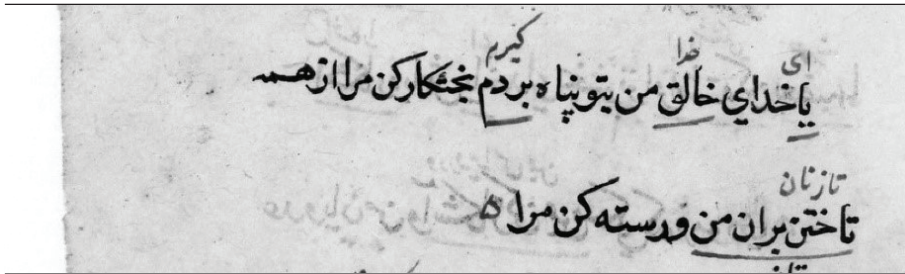 ای خدا گیرم
یا خدای خالق من بتو پناه بردم بخشکار کن مرا از همه
تازنان
تاختن بران من و رسته کن مرا ۵